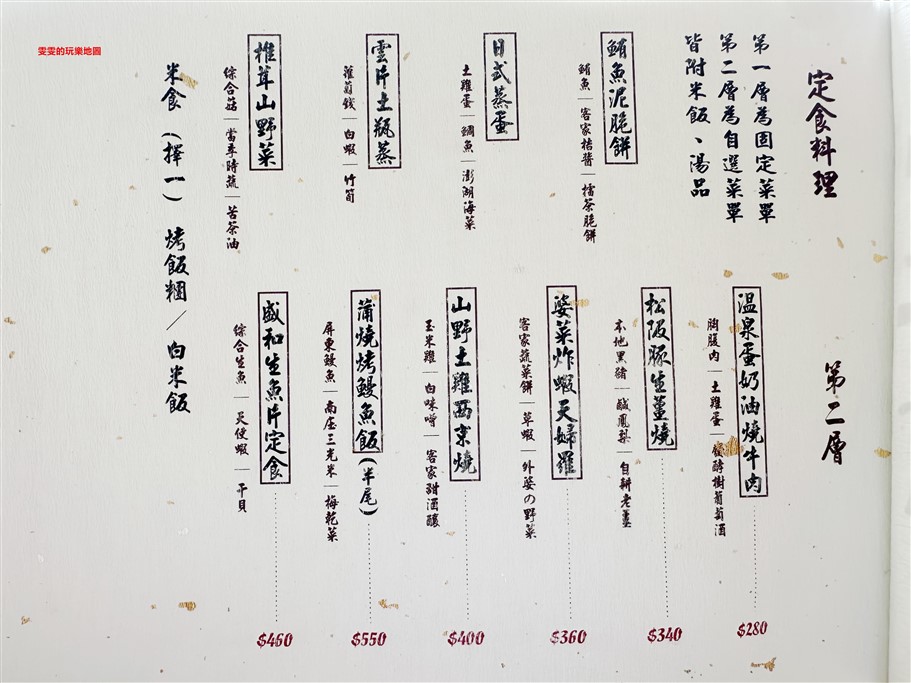 雯雯的玩樂地圖
定食料理
第一層為固定菜單
第二層為自選菜單
皆附米飯、湯品
鮪魚泥脆餅
鮪魚｜客家桔醬｜擂茶脆餅
日式蒸蛋
土雞蛋｜鯛魚｜澎湖海菜
雲片土瓶蒸
蘿蔔錢｜白蝦｜竹筍
椎茸山野菜
綜合菇｜當季時蔬｜苦茶油
米食（擇一） 烤飯糰／白米飯
第二層
溫泉蛋奶油燒牛肉 $280
胸腹肉｜土雞蛋｜發酵樹葡萄酒
松阪豚生薑燒 $340
本地黑豬｜鹹鳳梨｜自耕老薑
婆菜炸蝦天婦羅 $360
客家蔬菜餅｜草蝦｜外婆の野菜
山野土雞西京燒 $400
玉米雞｜白味噌｜客家甜酒釀
蒲燒烤鰻魚飯(半尾) $550
屏東鰻魚｜高座三光米｜梅乾菜
盛和生魚片定食 $460
綜合生魚｜天使蝦｜干貝